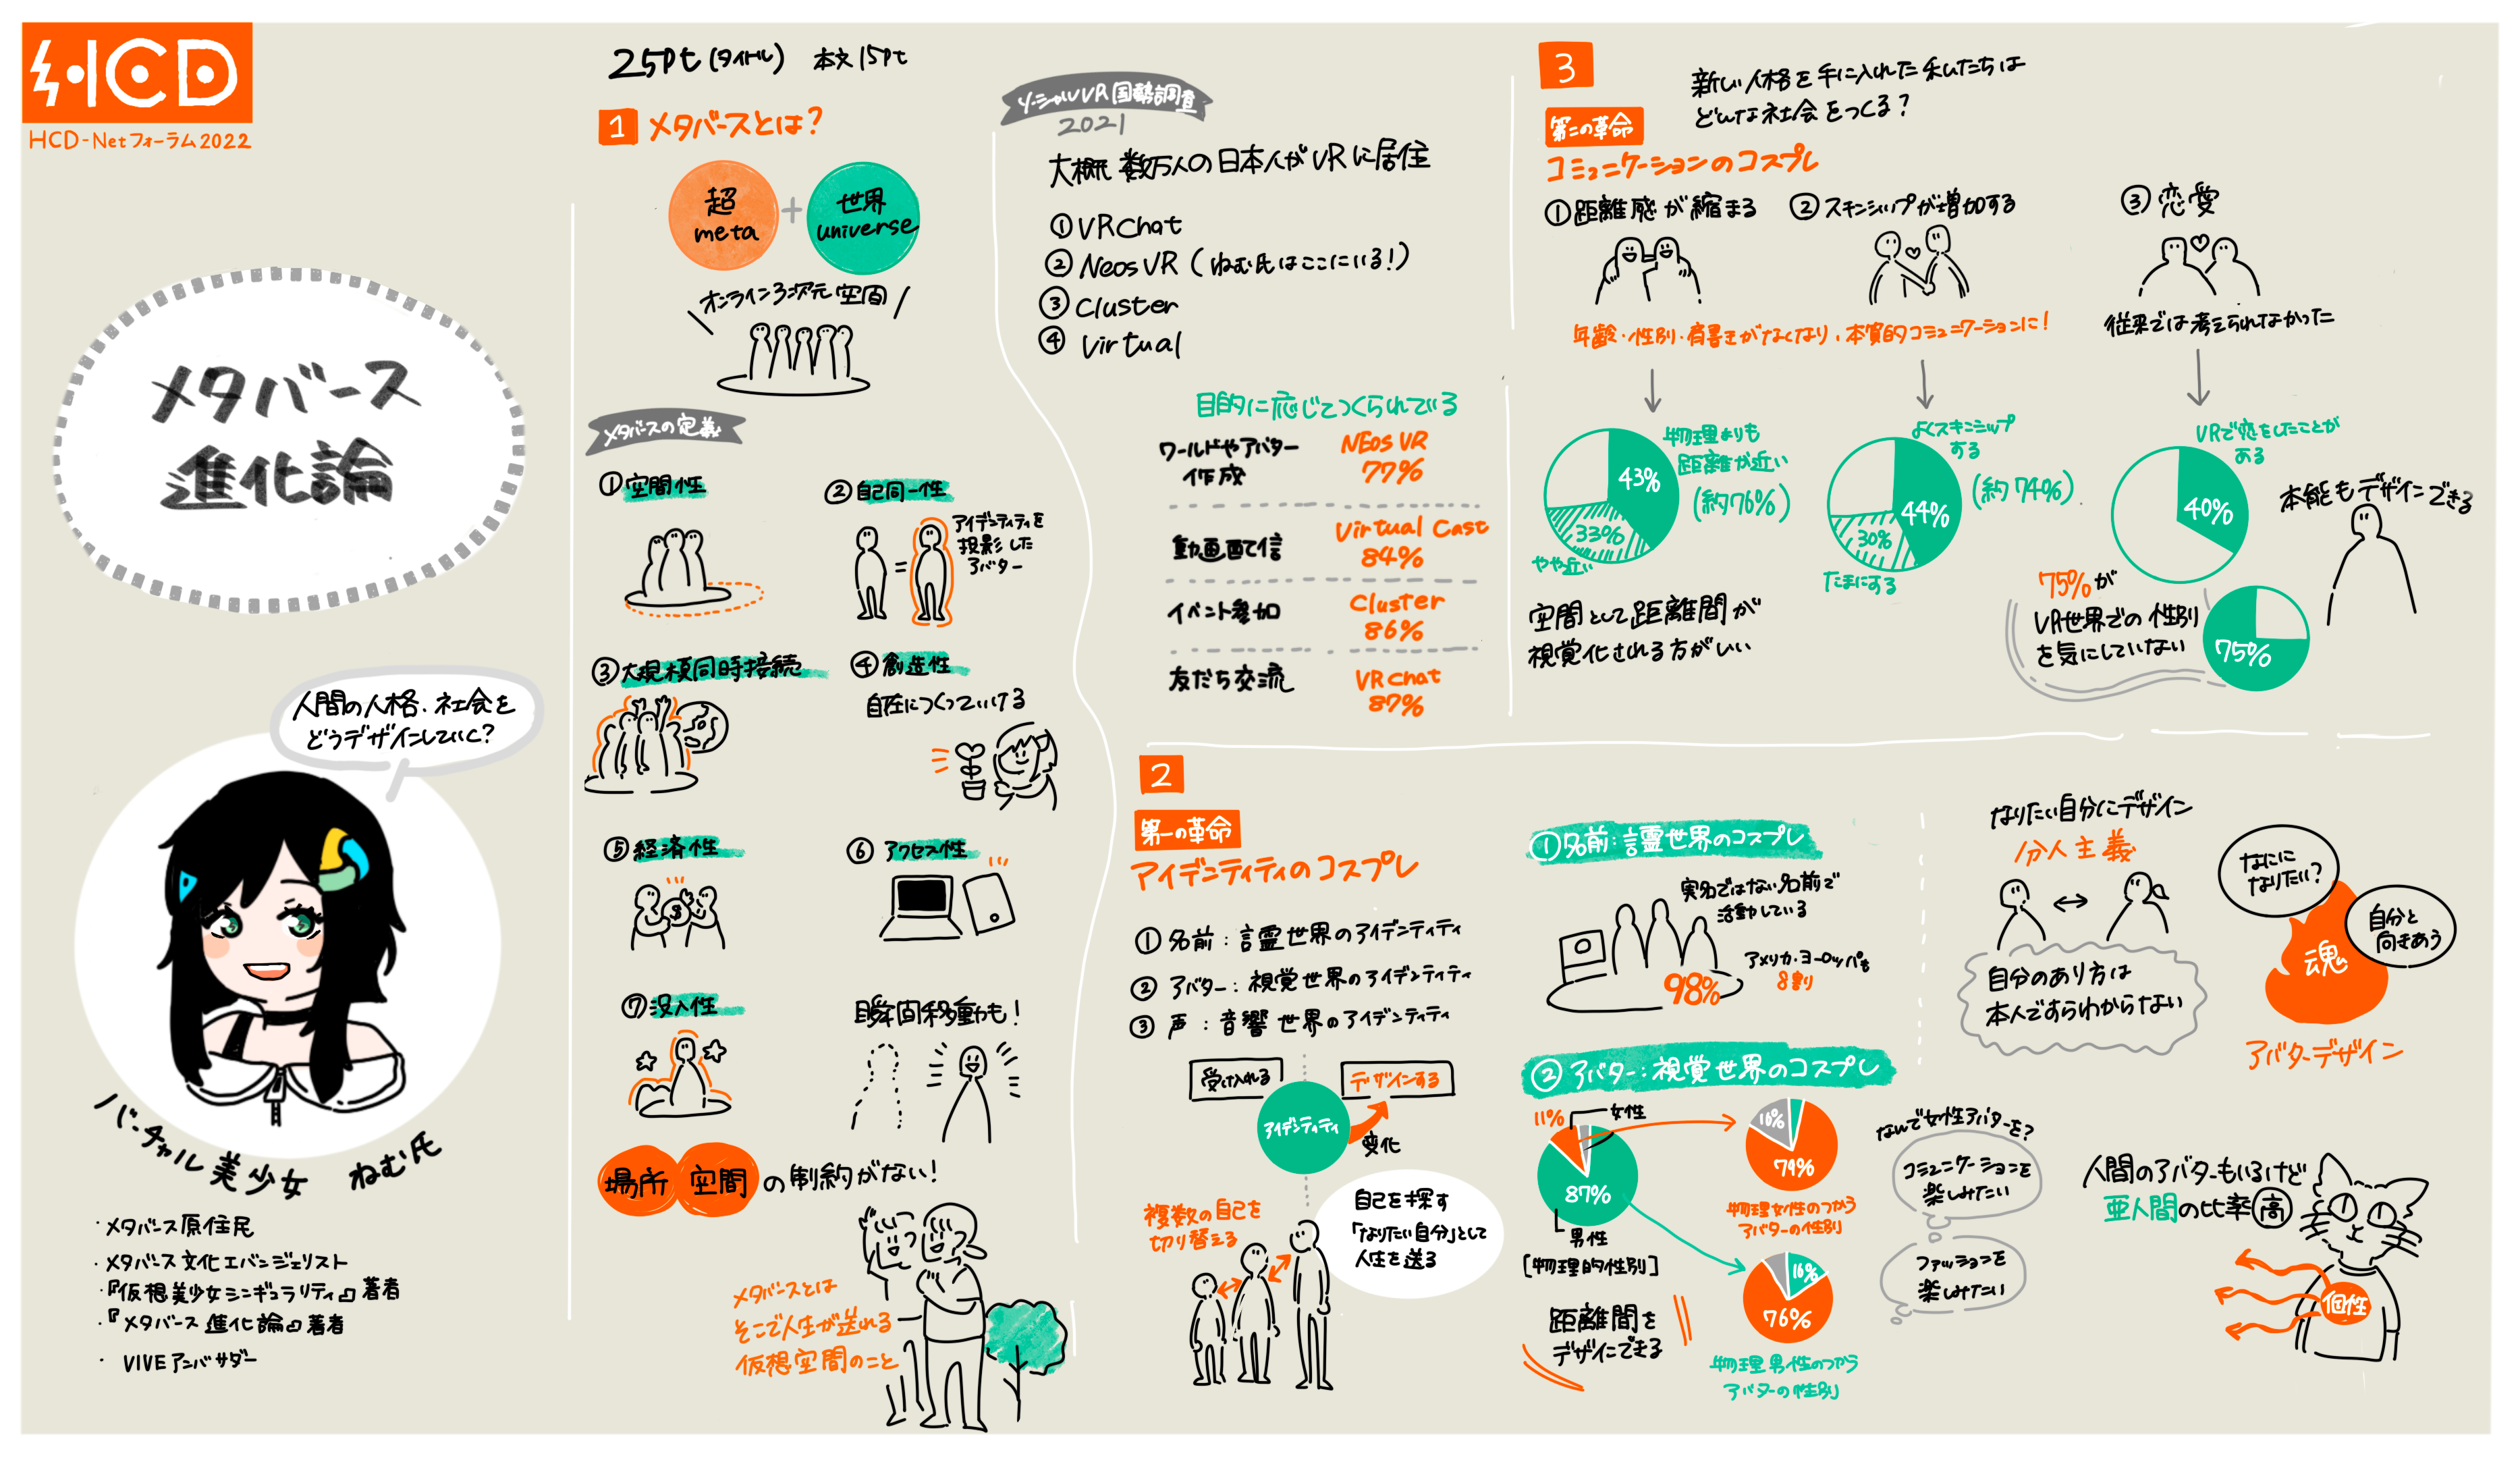 HCD
HCD-Netフォーラム2022
メタバース
進化論
人間の人格、社会を
どうデザインしていく?
バーチャル美少女 ねむ氏
・メタバース原住民
・メタバース文化エバンジェリスト
・『仮想美少女シンギュラリティ』著者
・『メタバース進化論』著者
・VIVEアンバサダー
25pt(タイトル) 本文15pt
1 メタバースとは?
超
meta
+
世界
universe
オンライン3次元空間
メタバースの定義
①空間性
②自己同一性
アイデンティティを
投影した
アバター
=
③大規模同時接続
④創造性
自在につくっていける
⑤経済性
$
⑥アクセス性
⑦没入性
瞬間移動も!
場所 空間の制約がない!
メタバースとは
そこで人生が送れる
仮想空間のこと
ソーシャルVR国勢調査
2021
大概数万人の日本人がVRに居住
①VRChat
②NeosVR(ねむ氏はここにいる!)
③Cluster
④Virtual
目的に応じてつくられている
ワールドやアバター
作成
NEos VR
77%
動画配信
Virtual Cast
84%
イベント参加
Cluster
86%
友だち交流
VRchat
87%
2
第一の革命
アイデンティティのコスプレ
①名前:言霊世界のアイデンティティ
②アバター:視覚世界のアイデンティティ
③声:音響世界のアイデンティティ
受け入れる
デザインする
アイデンティティ
変化
複数の自己を
切り替える
自己を探す
「なりたい自分」として
人生を送る
①名前:言霊世界のコスプレ
実名ではない名前で
活動している
98%
アメリカ・ヨーロッパも
8割り
②アバター:視覚世界のコスプレ
11%
女性
87%
男性
[物理的性別]
16%
79%
物理女性のつかう
アバターの性別
16%
76%
物理男性のつかう
アバターの性別
距離間を
デザインできる
なんで女性アバターを?
コミュニケーションを
楽しみたい
ファッションを
楽しみたい
なりたい自分にデザイン
分人主義
自分のあり方は
本人ですらわからない
なにに
なりたい?
自分と
向きあう
魂
アバターデザイン
人間のアバターもいるけど
亜人間の比率高
個性
3
新しい人格を手に入れた私たちは
どんな社会をつくる?
第二の革命
コミュニケーションのコスプレ
①距離感が縮まる
②スキンシップが増加する
③恋愛
年齢・性別・肩書きがなくなり、本質的コミュニケーションに!
従来では考えられなかった
物理よりも
距離が近い
43%
(約76%)
33%
やや近い
空間として距離間が
視覚化される方がいい
よくスキンシップ
する
44%
(約74%)
30%
たまにする
VRで恋をしたことが
ある
40%
本能もデザインできる
75%が
VR世界での性別
を気にしていない
75%